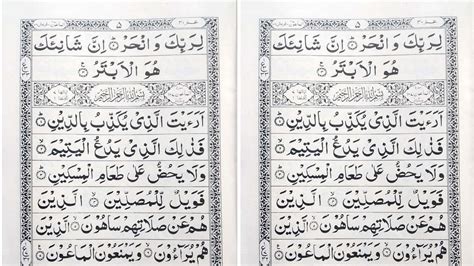 ٥
لِرَبِّكَ وَانْحَرْ ۝ اِنَّ شَانِئَكَ
هُوَ الْاَبْتَرُ ۝
بِسْمِ اللهِ الرَّحْمٰنِ الرَّحِيْمِ
اَرَءَيْتَ الَّذِىْ يُكَذِّبُ بِالدِّيْنِ ۝
فَذٰلِكَ الَّذِىْ يَدُعُّ الْيَتِيْمَ ۝
وَلَا يَحُضُّ عَلٰى طَعَامِ الْمِسْكِيْنِ ۝
فَوَيْلٌ لِّلْمُصَلِّيْنَ ۝ الَّذِيْنَ
هُمْ عَنْ صَلَاتِهِمْ سَاهُوْنَ ۝ الَّذِيْنَ
هُمْ يُرَآءُوْنَ ۝ وَيَمْنَعُوْنَ الْمَاعُوْنَ ۝
٥
لِرَبِّكَ وَانْحَرْ ۝ اِنَّ شَانِئَكَ
هُوَ الْاَبْتَرُ ۝
بِسْمِ اللهِ الرَّحْمٰنِ الرَّحِيْمِ
اَرَءَيْتَ الَّذِىْ يُكَذِّبُ بِالدِّيْنِ ۝
فَذٰلِكَ الَّذِىْ يَدُعُّ الْيَتِيْمَ ۝
وَلَا يَحُضُّ عَلٰى طَعَامِ الْمِسْكِيْنِ ۝
فَوَيْلٌ لِّلْمُصَلِّيْنَ ۝ الَّذِيْنَ
هُمْ عَنْ صَلَاتِهِمْ سَاهُوْنَ ۝ الَّذِيْنَ
هُمْ يُرَآءُوْنَ ۝ وَيَمْنَعُوْنَ الْمَاعُوْنَ ۝